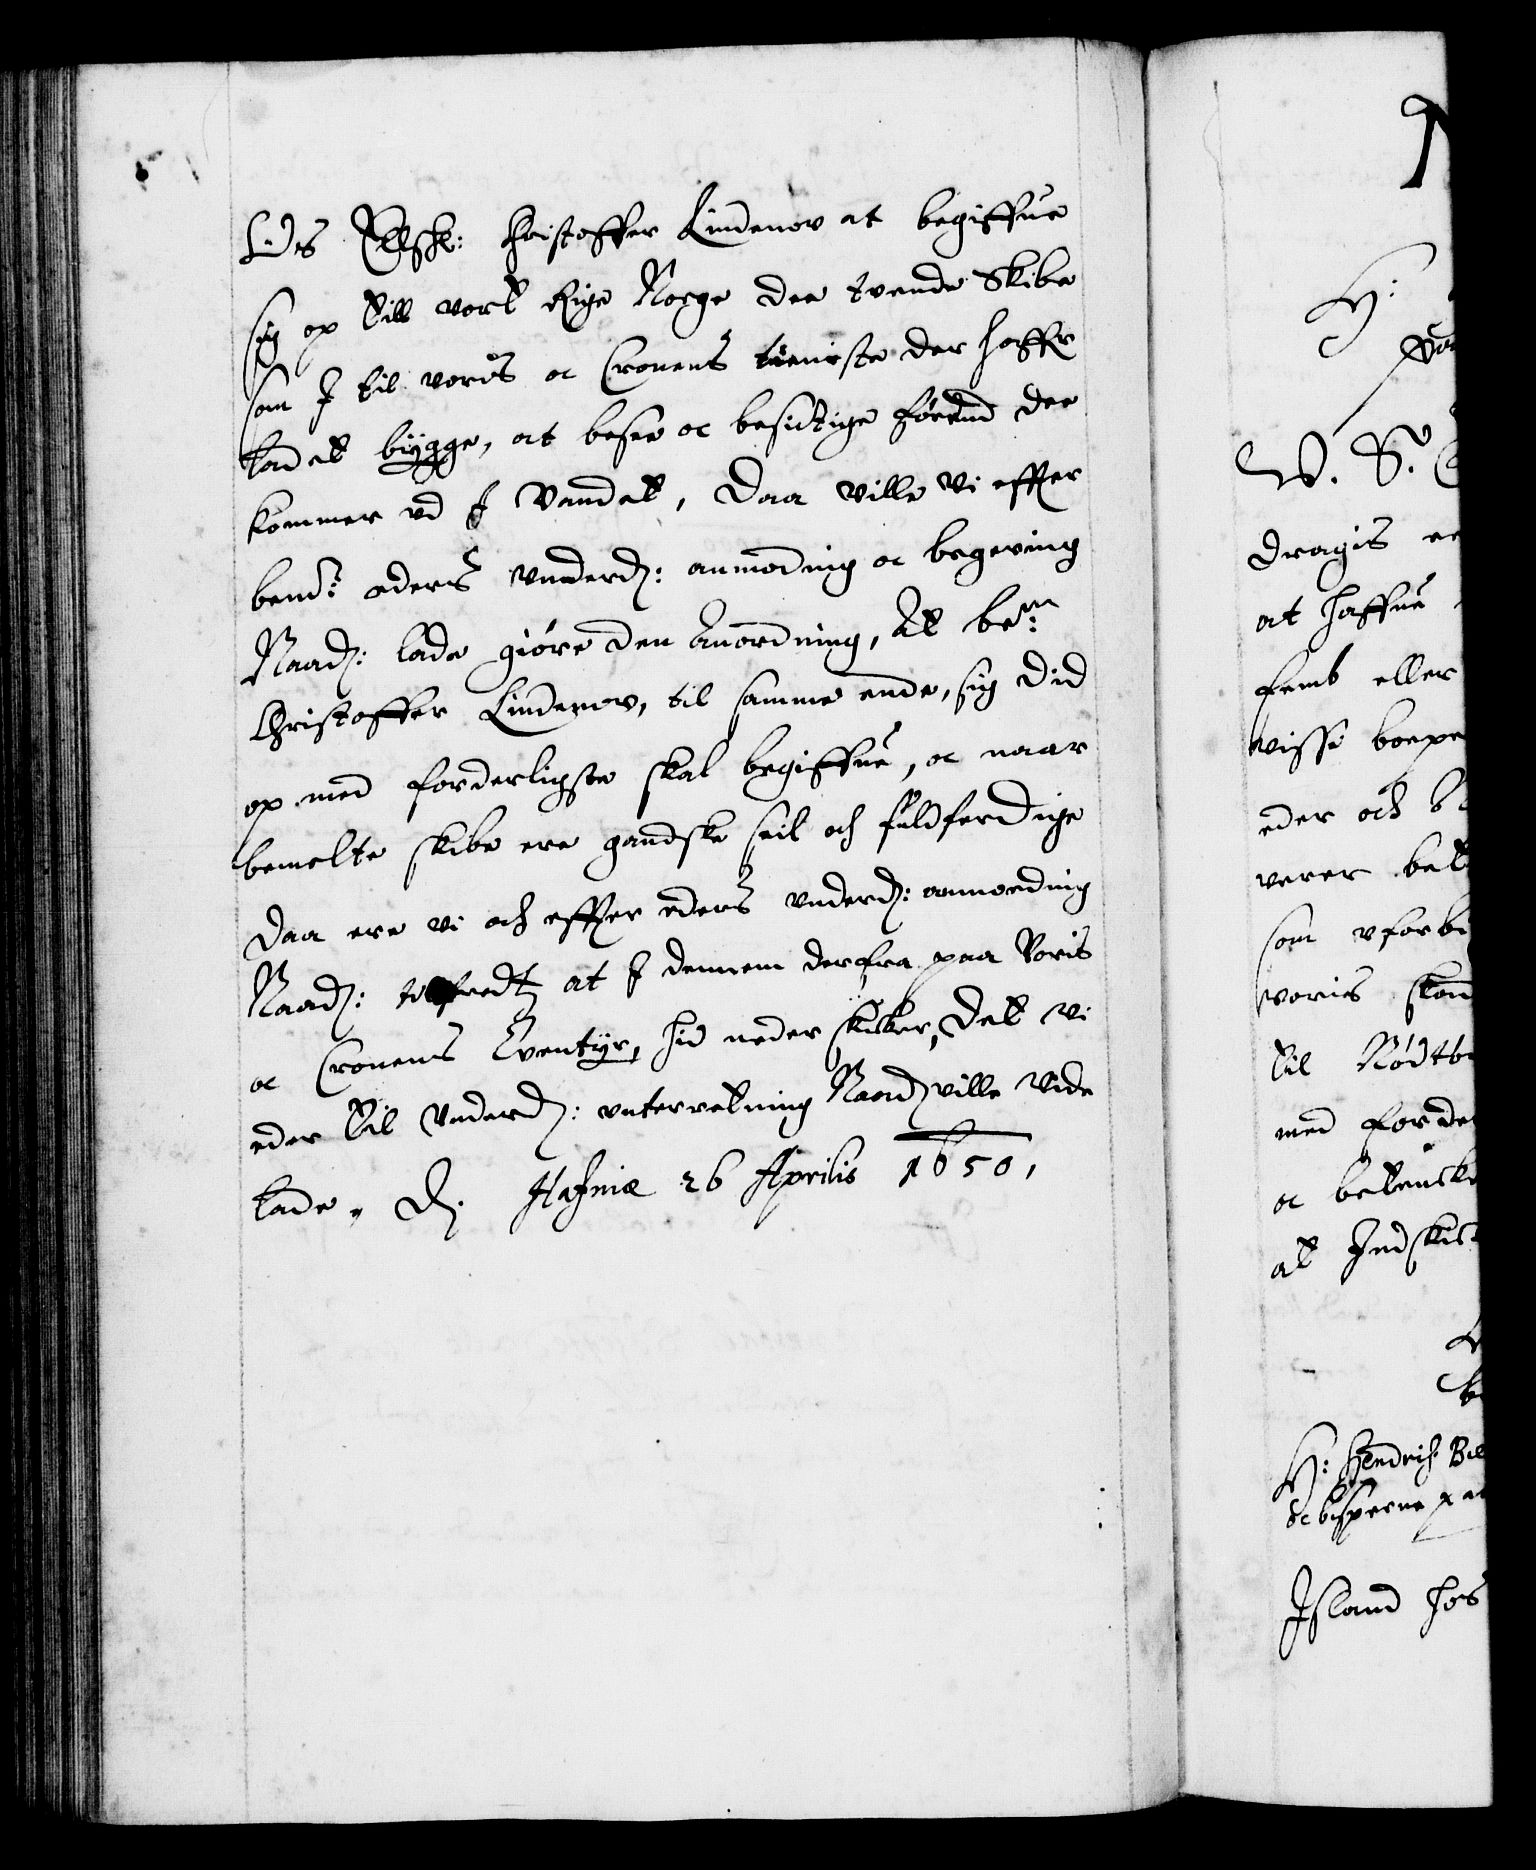 Os Elschl: Christoffer Lindenov at begiffue
sig op till vort Rige Norge dee tvende Skibe
som J til voris oc Cronens tieniste der haffr
ladet bÿgge, at besee oc besictige förend dee
kommer ud J Vandet, Daa ville vi effter
bemt: eders underd: anmodning oc begering
Naad: lade giöre den Anordning, At bete:
Christoffer Lindenov, til samme ende, sig did
op med forderligste skal begiffue, oc naar
bemelte skibe ere gandske seil och fuldferdige
Daa ere vi och effter eders underd: anmoding
Naad: tilfredtz at J dennem derfra paa Voris
oc Cronens Eventÿr, hid neder skikker, Det vi
eder til Underd: unterretning Naad: ville vide
lade. D. Hafniæ 26 Aprilis 1650,
H:
W. S.
Dragis
at haffue
femb eller
visse
eder och
verer
som
voris
til Nödt
med forde
oc betencke
at Indskic
H: Hendrich Bil
oc bisperne pa
Jsland hos